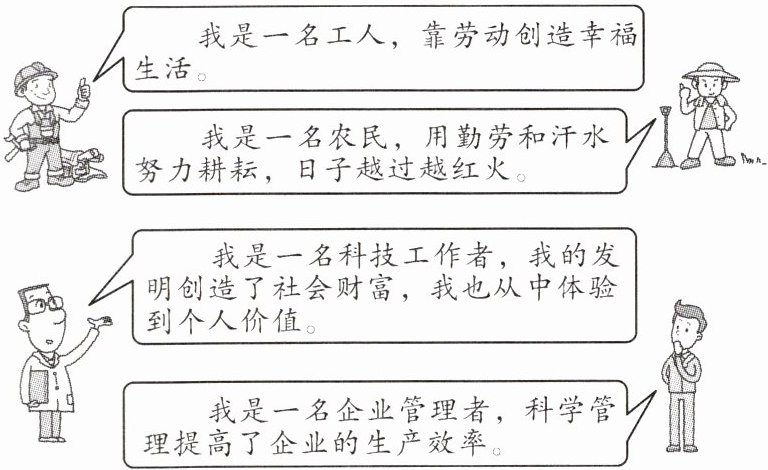 我是一名工人，靠劳动创造幸福
生活。
我是一名农民，用勤劳和汗水
努力耕耘，日子越过越红火。
我是一名科技工作者，我的发
明创造了社会财富，我也从中体验
到个人价值。
我是一名企业管理者，科学管
理提高了企业的生产效率。